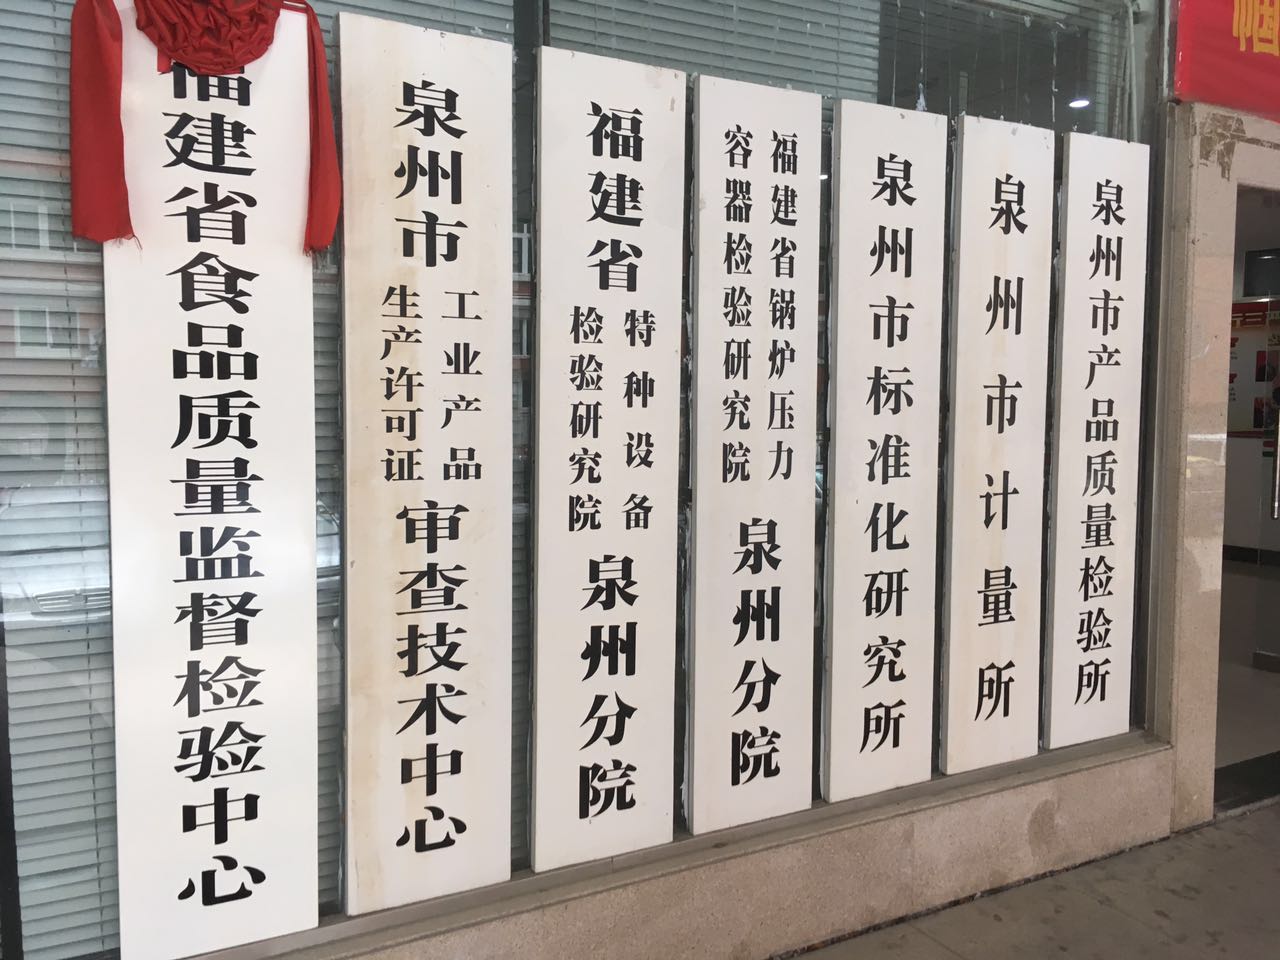 福建省食品质量监督检验中心
泉州市
工业产品
生产许可证
审查技术中心
福建省
特种设备
检验研究院
泉州分院
福建省锅炉压力
容器检验研究院
泉州分院
泉州市标准化研究所
泉州市计量所
泉州市产品质量检验所